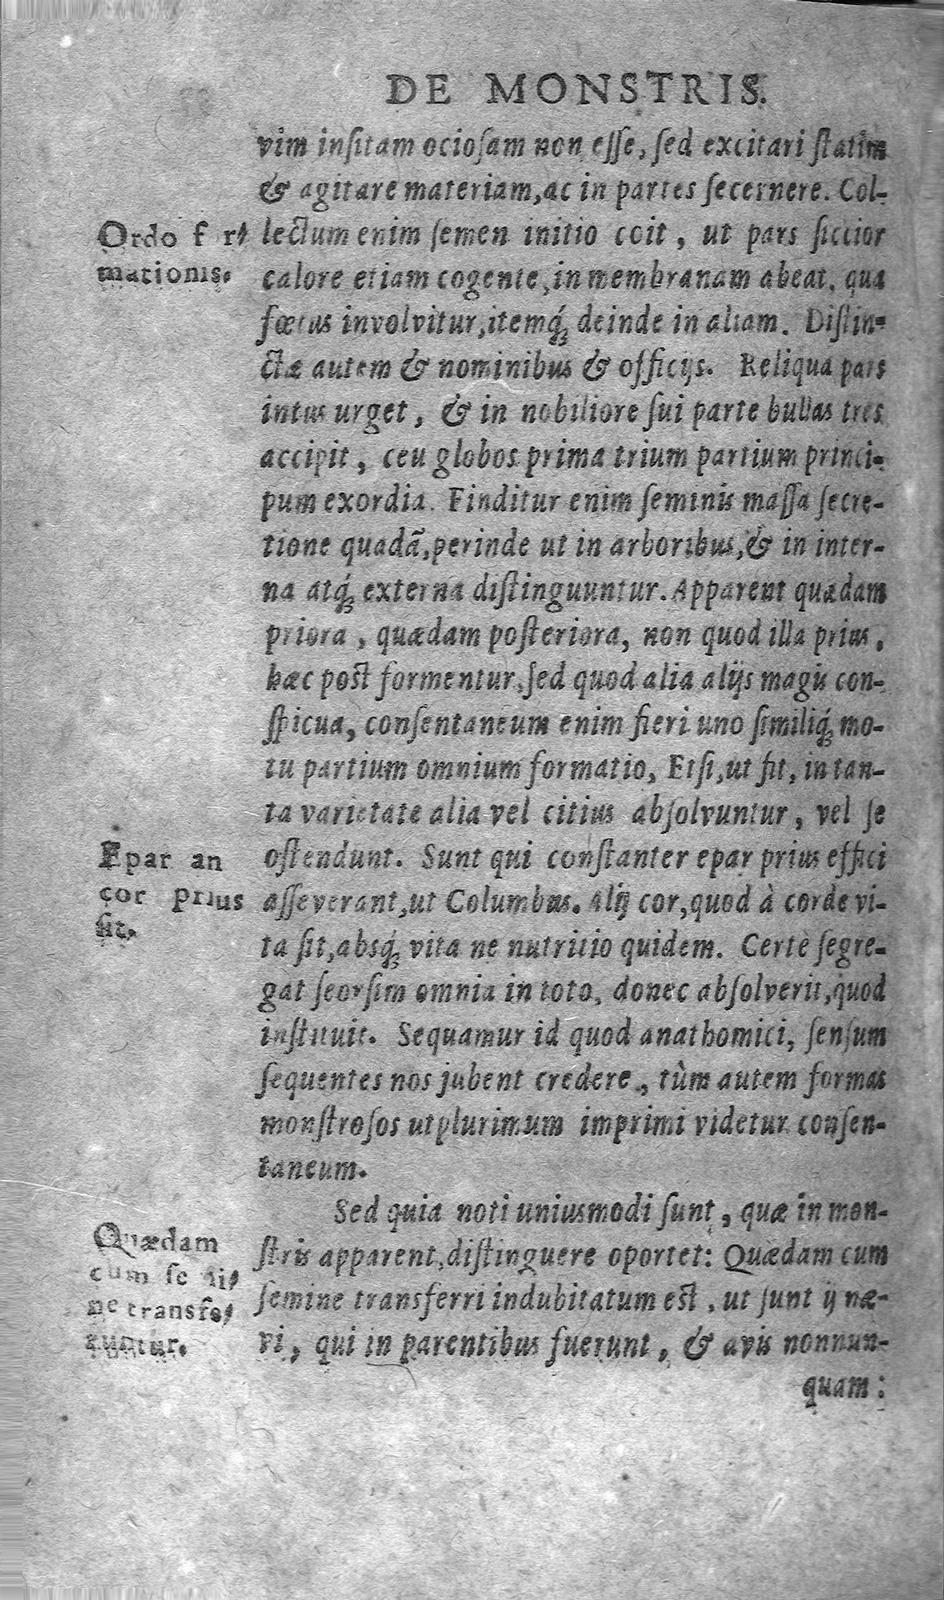 DE MONSTRIS.
vim inſitam ocioſam non eſſe, ſed excitari ſtatim
& agitare materiam, ac in partes ſecernere. Col-
Ordo f r
mationis.
lectum enim ſemen initio coit, ut pars ſiccior
calore etiam cogente, in membranam abeat, qua
fœtus involvitur, itemq́; deinde in aliam. Diſtin-
ctæ autem & nominibus & officijs. Reliqua pars
intus urget, & in nobiliore ſui parte bullas tres
accipit, ceu globos prima trium partium princi-
pum exordia. Finditur enim ſeminis maſſa ſecre-
tione quadã, perinde ut in arboribus, & in inter-
na atq́; externa diſtinguuntur. Apparent quædam
priora, quædam poſteriora, non quod illa prius,
hæc poſt formentur, ſed quod alia alijs magis con-
ſpicua, conſentaneum enim fieri uno ſimiliq́; mo-
tu partium omnium formatio, Etſi, ut fit, in tan-
ta varietate alia vel citius abſolvuntur, vel ſe
Epar an
cor prius
ſit.
oſtendunt. Sunt qui conſtanter epar prius effici
aſſeverant, ut Columbus. Alij cor, quod à corde vi-
ta ſit, abſq́; vita ne nutritio quidem. Certè ſegre-
gat ſeorſim omnia in toto, donec abſolverit, quod
inſtituit. Sequamur id quod anathomici, ſenſum
ſequentes nos jubent credere, tùm autem formas
monſtroſos utplurimum imprimi videtur conſen-
taneum.
Sed quia noti uniusmodi ſunt, quæ in mon-
Quædam
cum ſe
ne transfe
runtur.
ſtris apparent, diſtinguere oportet: Quædam cum
ſemine transferri indubitatum eſt, ut ſunt ij næ-
vi, qui in parentibus fuerunt, & avis nonnun-
quam: